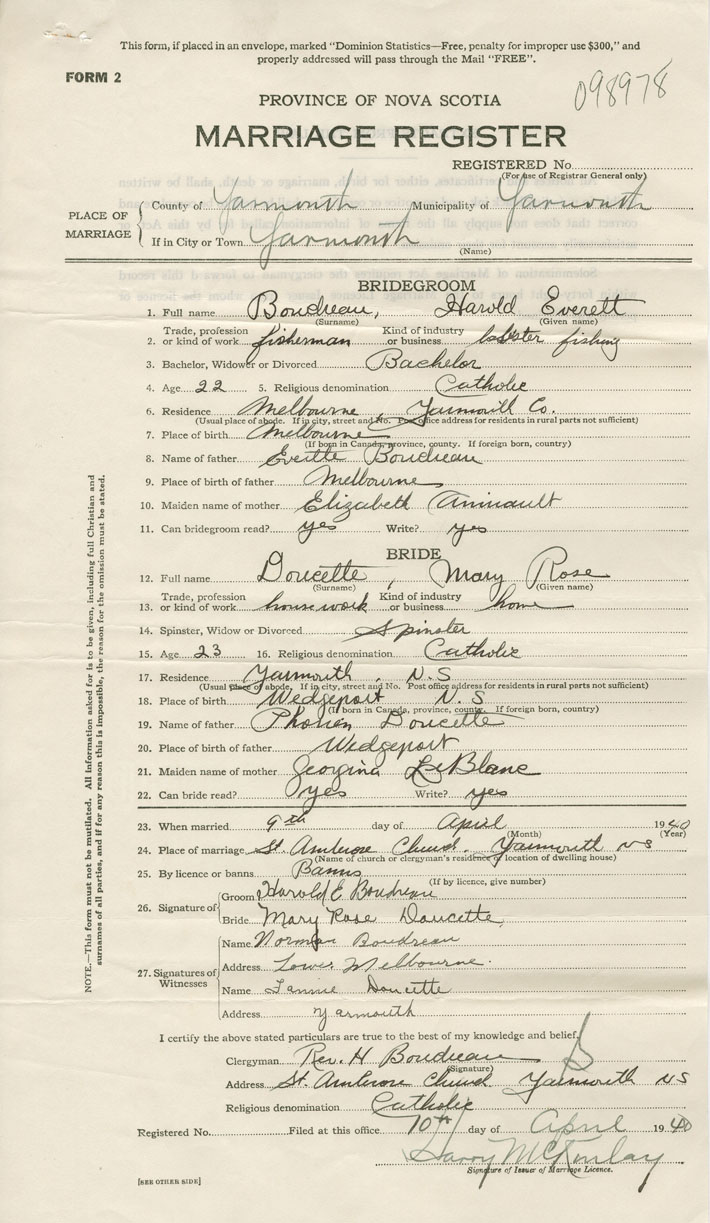 This form, if placed in an envelope, marked "Dominion Statistics—Free, penalty for improper use $300," and
properly addressed will pass through the Mail "FREE".
FORM 2
098978
PROVINCE OF NOVA SCOTIA
MARRIAGE REGISTER
REGISTERED No.
(For use of Registrar General only)
PLACE OF MARRIAGE
County of Yarmouth Municipality of Yarmouth
If in City or Town Yarmouth
(Name)
BRIDEGROOM
1. Full name Boudreau, Harold Everett
(Surname) (Given name)
2. Trade, profession or kind of work fisherman Kind of industry or business lobster fishing
3. Bachelor, Widower or Divorced Bachelor
4. Age 22 5. Religious denomination Catholic
6. Residence Melbourne, Yarmouth Co.
(Usual place of abode. If in city, street and No. Post office address for residents in rural parts not sufficient)
7. Place of birth Melbourne
(If born in Canada, province, county. If foreign born, country)
8. Name of father Boudreau
9. Place of birth of father Melbourne
10. Maiden name of mother Elizabeth
11. Can bridegroom read? yes Write? yes
BRIDE
12. Full name Doucette, Mary Rose
(Surname) (Given name)
13. Trade, profession or kind of work housework Kind of industry or business home
14. Spinster, Widow or Divorced Spinster
15. Age 23 16. Religious denomination Catholic
17. Residence Yarmouth, N.S
(Usual place of abode. If in city, street and No. Post office address for residents in rural parts not sufficient)
18. Place of birth Wedgeport N.S
(If born in Canada, province, county. If foreign born, country)
19. Name of father Doucette
20. Place of birth of father Wedgeport
21. Maiden name of mother Georgina LeBlanc
22. Can bride read? yes Write? yes
23. When married 9th day of April 1940
(Month) (Year)
24. Place of marriage St. Ambrose Church. Yarmouth NS
(Name of church or clergyman's residence or location of dwelling house)
25. By licence or banns Banns
(If by licence, give number)
26. Signature of
Groom Harold E Boudreau
Bride Mary Rose Doucette
27. Signatures of Witnesses
Name Norman Boudreau
Address Lower Melbourne.
Name Doucette
Address Yarmouth
I certify the above stated particulars are true to the best of my knowledge and belief.
Clergyman Rev. H Boudreau
(Signature)
Address St. Ambrose Church Yarmouth NS
Religious denomination Catholic
Registered No. Filed at this office 10th day of April 1940
Harry McKinlay
Signature of Issuer of Marriage Licence.
[SEE OTHER SIDE]
NOTE.—This form must not be mutilated. All information asked for is to be given, including full Christian and
surnames of all parties, and if for any reason this is impossible, the reason for the omission must be stated.